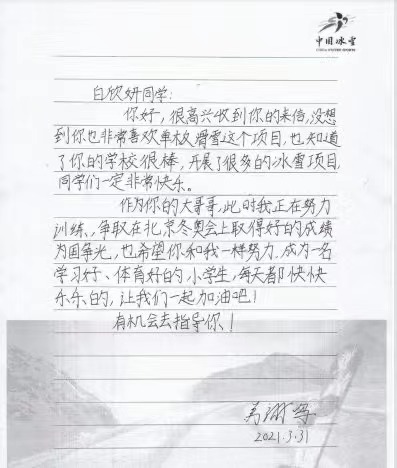 中国冰雪
CHINA WINTER SPORTS
白欣妍同学:
你好,很高兴收到你的来信,没想
到你也非常喜欢单板滑雪这个项目,也知道
了你的学校很棒,开展了很多的冰雪项目,
同学们一定非常快乐。
作为你的大哥哥,此时我正在努力
训练,争取在北京冬奥会上取得好的成绩
为国争光,也希望你和我一样努力,成为一名
学习好、体育好的小学生,每天都快快
乐乐的,让我们一起加油吧!
有机会去指导你!
2021.3.31